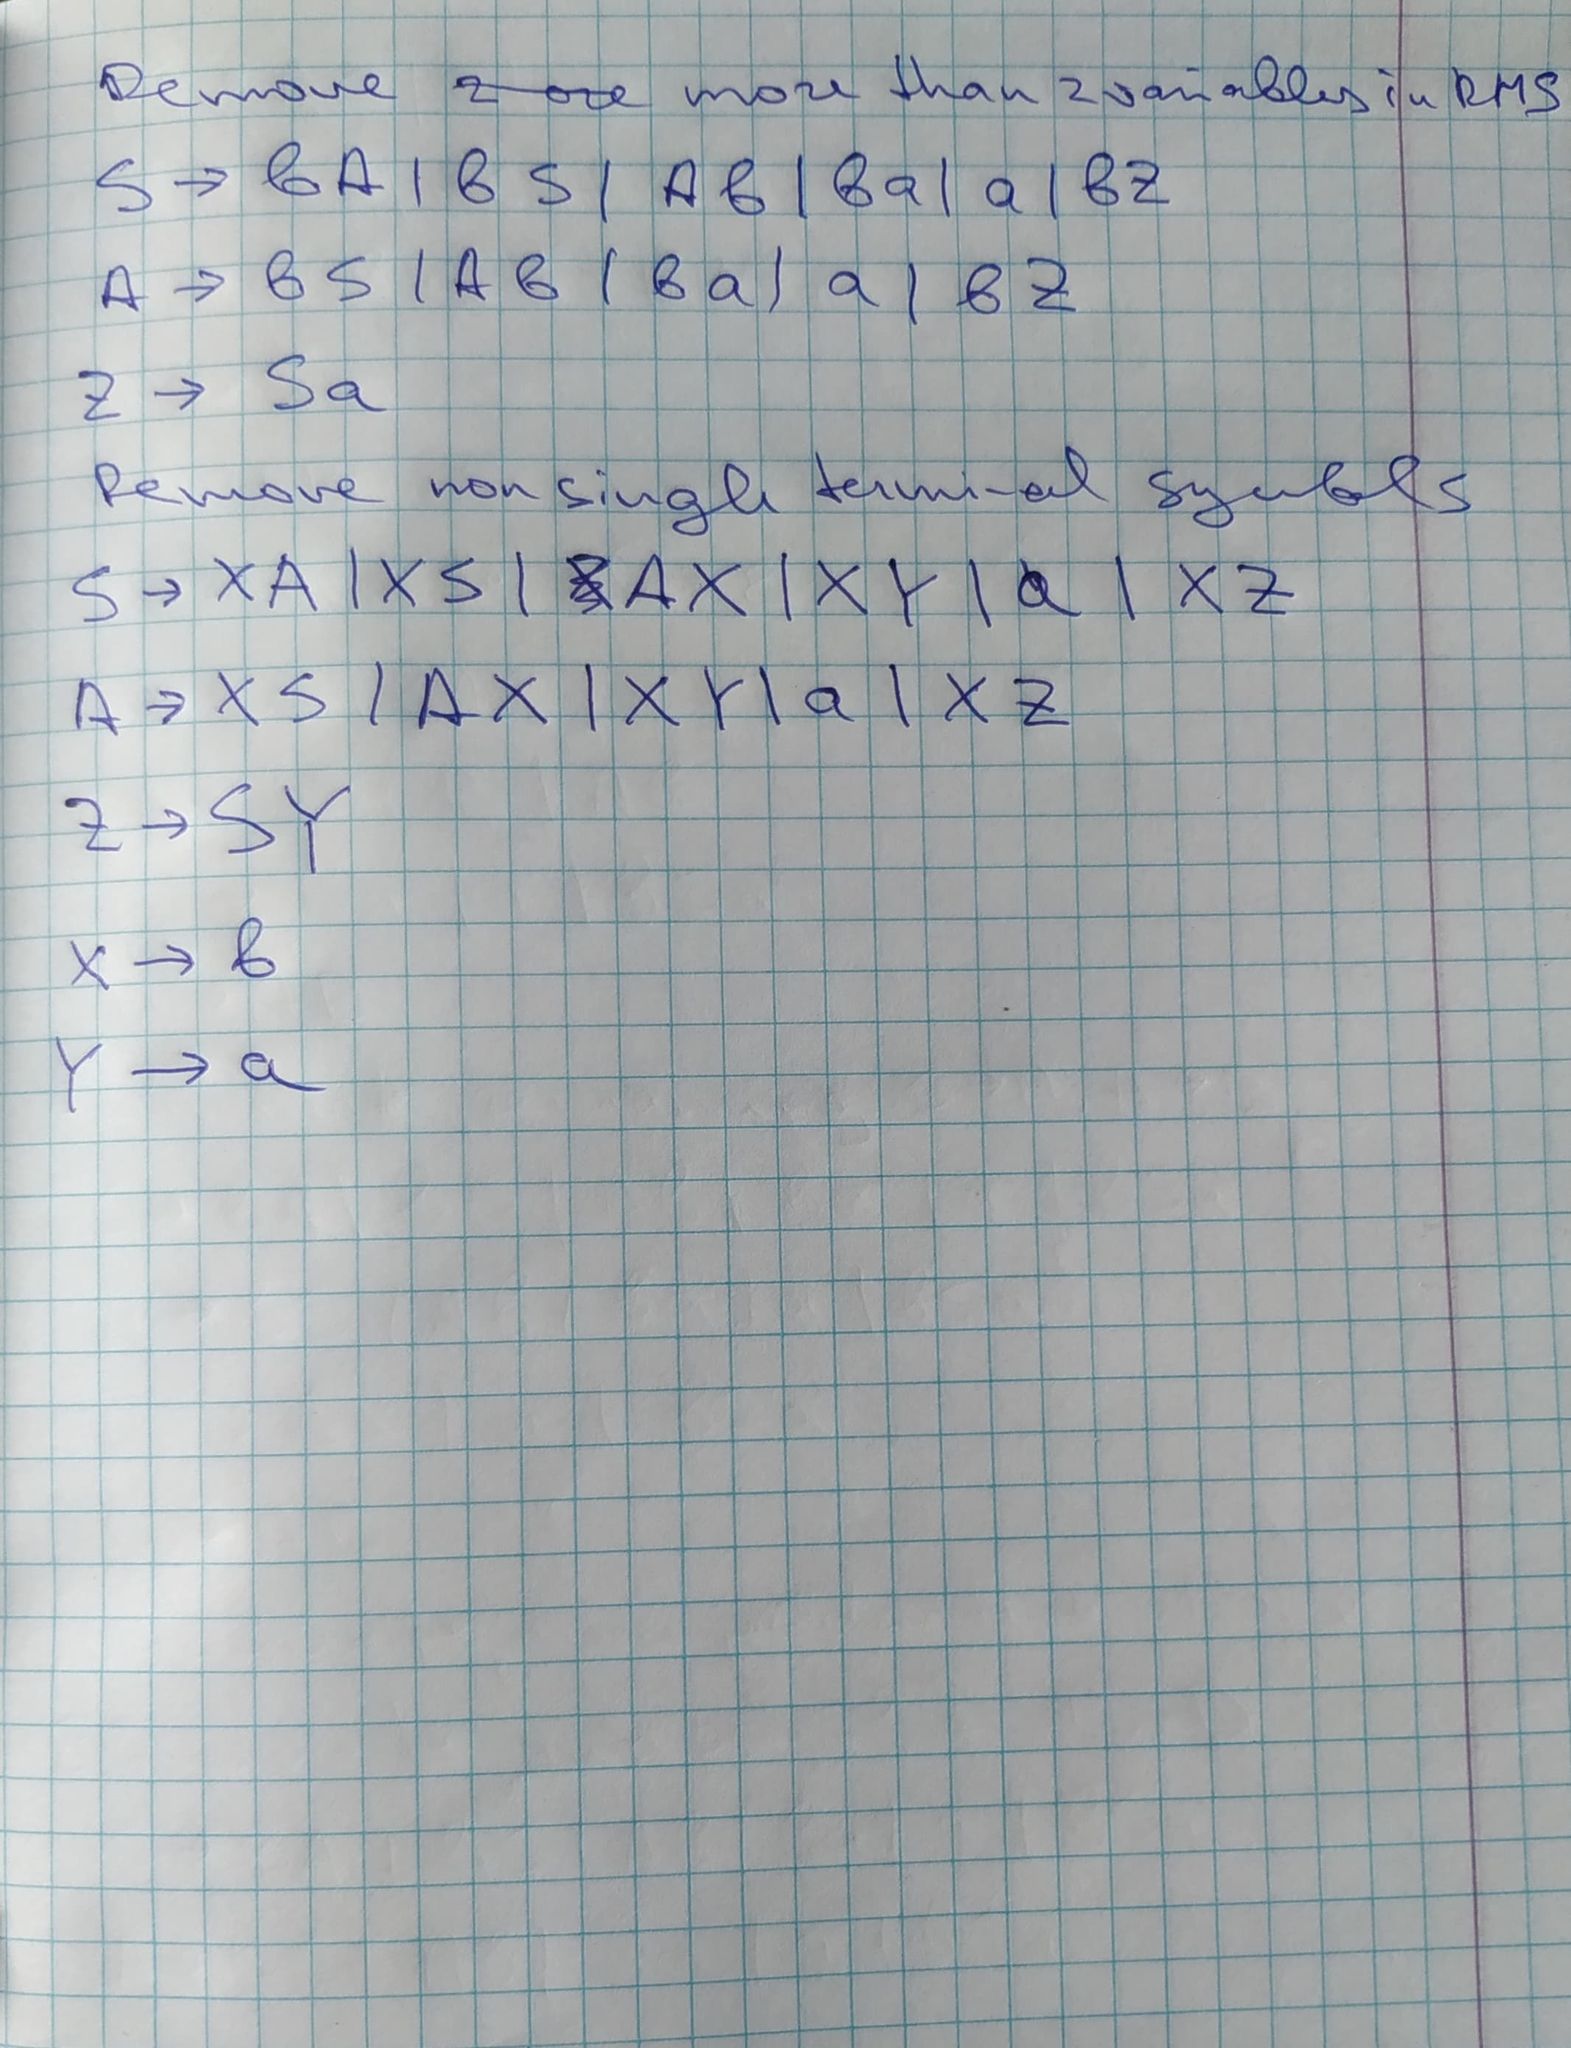 Remove more than 2 variables in RHS
S → bA | bS | Ab | ba | a | bZ
A → bS | Ab | ba | a | bZ
Z → Sa
Remove non single terminal symbols
S → XA | XS | AX | XY | a | XZ
A → XS | AX | XY | a | XZ
Z → SY
X → b
Y → a